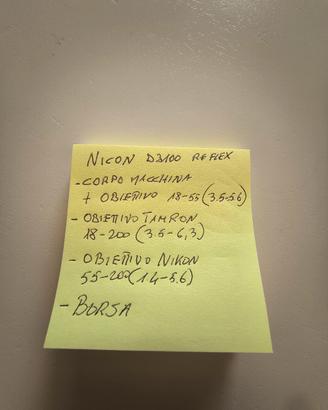 NICON D3100 REFLEX
- CORPO MACCHINA
+ OBIETTIVO 18-55 (3.5-5.6)
- OBIETTIVO TAMRON
18-200 (3.5-6,3)
- OBIETTIVO NIKON
55-200 (1.4-5.6)
- BORSA